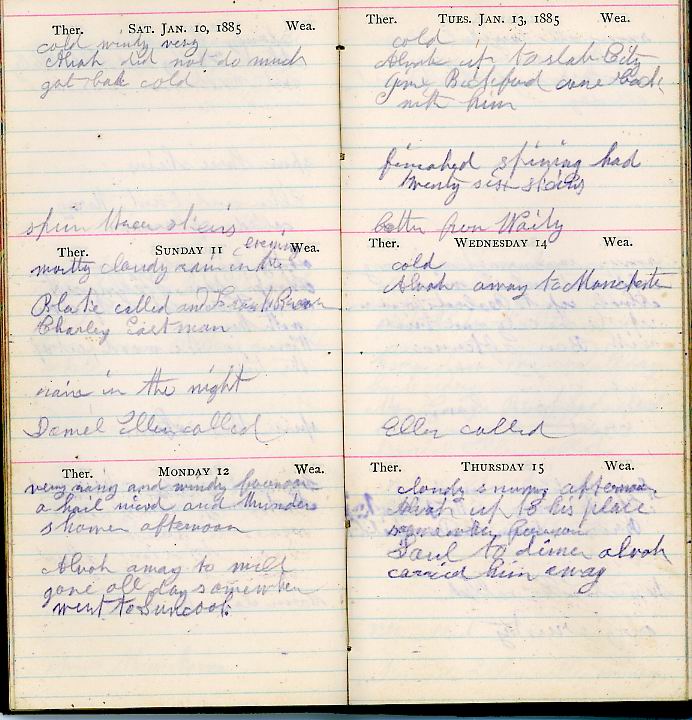 Ther. SAT. JAN. 10, 1885 Wea.
cold windy very
Alvah did not do much
got bad cold
spun three skeins
Ther. SUNDAY 11 Wea.
evening
mostly cloudy rain in the
Blake called and Frank Brown
Charley Eastman
rain in the night
Daniel Ellen called
Ther. MONDAY 12 Wea.
very rainy and windy forenoon
a hail wind and thunder
shower afternoon
Alvah away to mill
gone all day somewher
went to Suncook
Ther. TUES. JAN. 13, 1885 Wea.
cold
Alvah up to slab City
Gim Bickford came back
with him
finished spining had
twenty six skeins
better from Waity
Ther. WEDNESDAY 14 Wea.
cold
Alvah away to Manchester
Ellen called
Ther. THURSDAY 15 Wea.
cloudy sunny afternoon
Alvah up to his place
forenoon
Saul to dinner alvah
carried him away